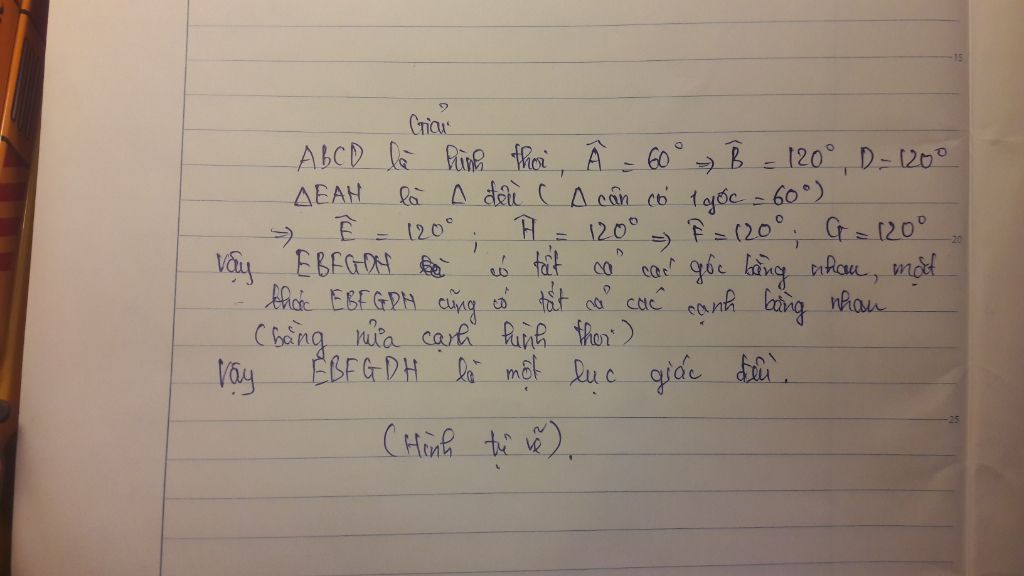 Giải
ABCD là hình thoi, Â = 60° => B̂ = 120°, D = 120°
ΔEAH là Δ đều ( Δ cân có 1 góc = 60°)
=> Ê = 120° ; Ĥ = 120° => F̂ = 120° ; G = 120°
Vậy EBFGDH có tất cả các góc bằng nhau, mặt
khác EBFGDH cũng có tất cả các cạnh bằng nhau
(bằng nửa cạnh hình thoi)
Vậy EBFGDH là một lục giác đều.
(Hình tự vẽ).
15
20
25